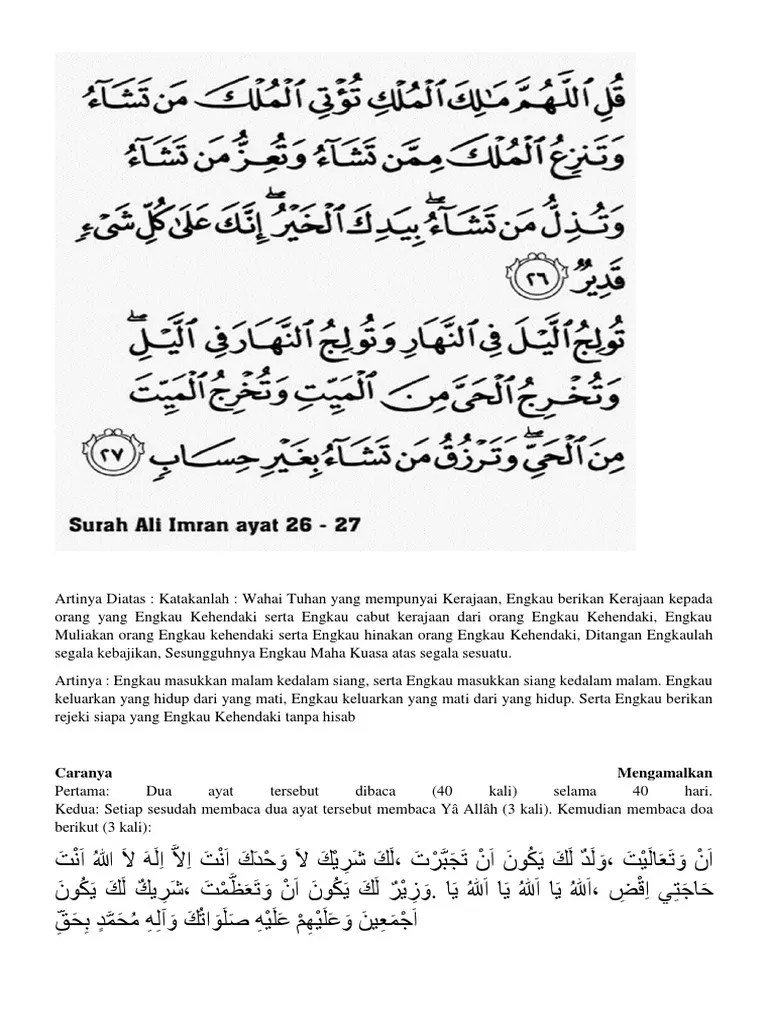 قُلِ ٱللَّهُمَّ مَٰلِكَ ٱلْمُلْكِ تُؤْتِى ٱلْمُلْكَ مَن تَشَآءُ
وَتَنزِعُ ٱلْمُلْكَ مِمَّن تَشَآءُ وَتُعِزُّ مَن تَشَآءُ
وَتُذِلُّ مَن تَشَآءُ ۖ بِيَدِكَ ٱلْخَيْرُ ۖ إِنَّكَ عَلَىٰ كُلِّ شَىْءٍ
قَدِيرٌ ٢٦
تُولِجُ ٱلَّيْلَ فِى ٱلنَّهَارِ وَتُولِجُ ٱلنَّهَارَ فِى ٱلَّيْلِ ۖ
وَتُخْرِجُ ٱلْحَىَّ مِنَ ٱلْمَيِّتِ وَتُخْرِجُ ٱلْمَيِّتَ
مِنَ ٱلْحَىِّ ۖ وَتَرْزُقُ مَن تَشَآءُ بِغَيْرِ حِسَابٍ ٢٧
Surah Ali Imran ayat 26 - 27
Artinya Diatas : Katakanlah : Wahai Tuhan yang mempunyai Kerajaan, Engkau berikan Kerajaan kepada
orang yang Engkau Kehendaki serta Engkau cabut kerajaan dari orang Engkau Kehendaki, Engkau
Muliakan orang Engkau kehendaki serta Engkau hinakan orang Engkau Kehendaki, Ditangan Engkaulah
segala kebajikan, Sesungguhnya Engkau Maha Kuasa atas segala sesuatu.
Artinya : Engkau masukkan malam kedalam siang, serta Engkau masukkan siang kedalam malam. Engkau
keluarkan yang hidup dari yang mati, Engkau keluarkan yang mati dari yang hidup. Serta Engkau berikan
rejeki siapa yang Engkau Kehendaki tanpa hisab
Caranya Mengamalkan
Pertama: Dua ayat tersebut dibaca (40 kali) selama 40 hari.
Kedua: Setiap sesudah membaca dua ayat tersebut membaca Yâ Allâh (3 kali). Kemudian membaca doa
berikut (3 kali):
اَنْتَ اللهُ لاَ اِلَهَ اِلاَّ اَنْتَ وَحْدَكَ لاَ شَرِيْكَ لَكَ، تَجَبَّرْتَ اَنْ يَكُونَ لَكَ وَلَدٌ، وَتَعَالَيْتَ اَنْ
يَكُونَ لَكَ شَرِيكٌ، وَتَعَظَّمْتَ اَنْ يَكُونَ لَكَ وَزِيْرٌ. يَا اَللهُ يَا اَللهُ يَا اَللهُ، اِقْضِ حَاجَتِي
بِحَقِّ مُحَمَّدٍ وَآلِهِ صَلَوَاتُكَ عَلَيْهِ وَعَلَيْهِمْ اَجْمَعِينَ